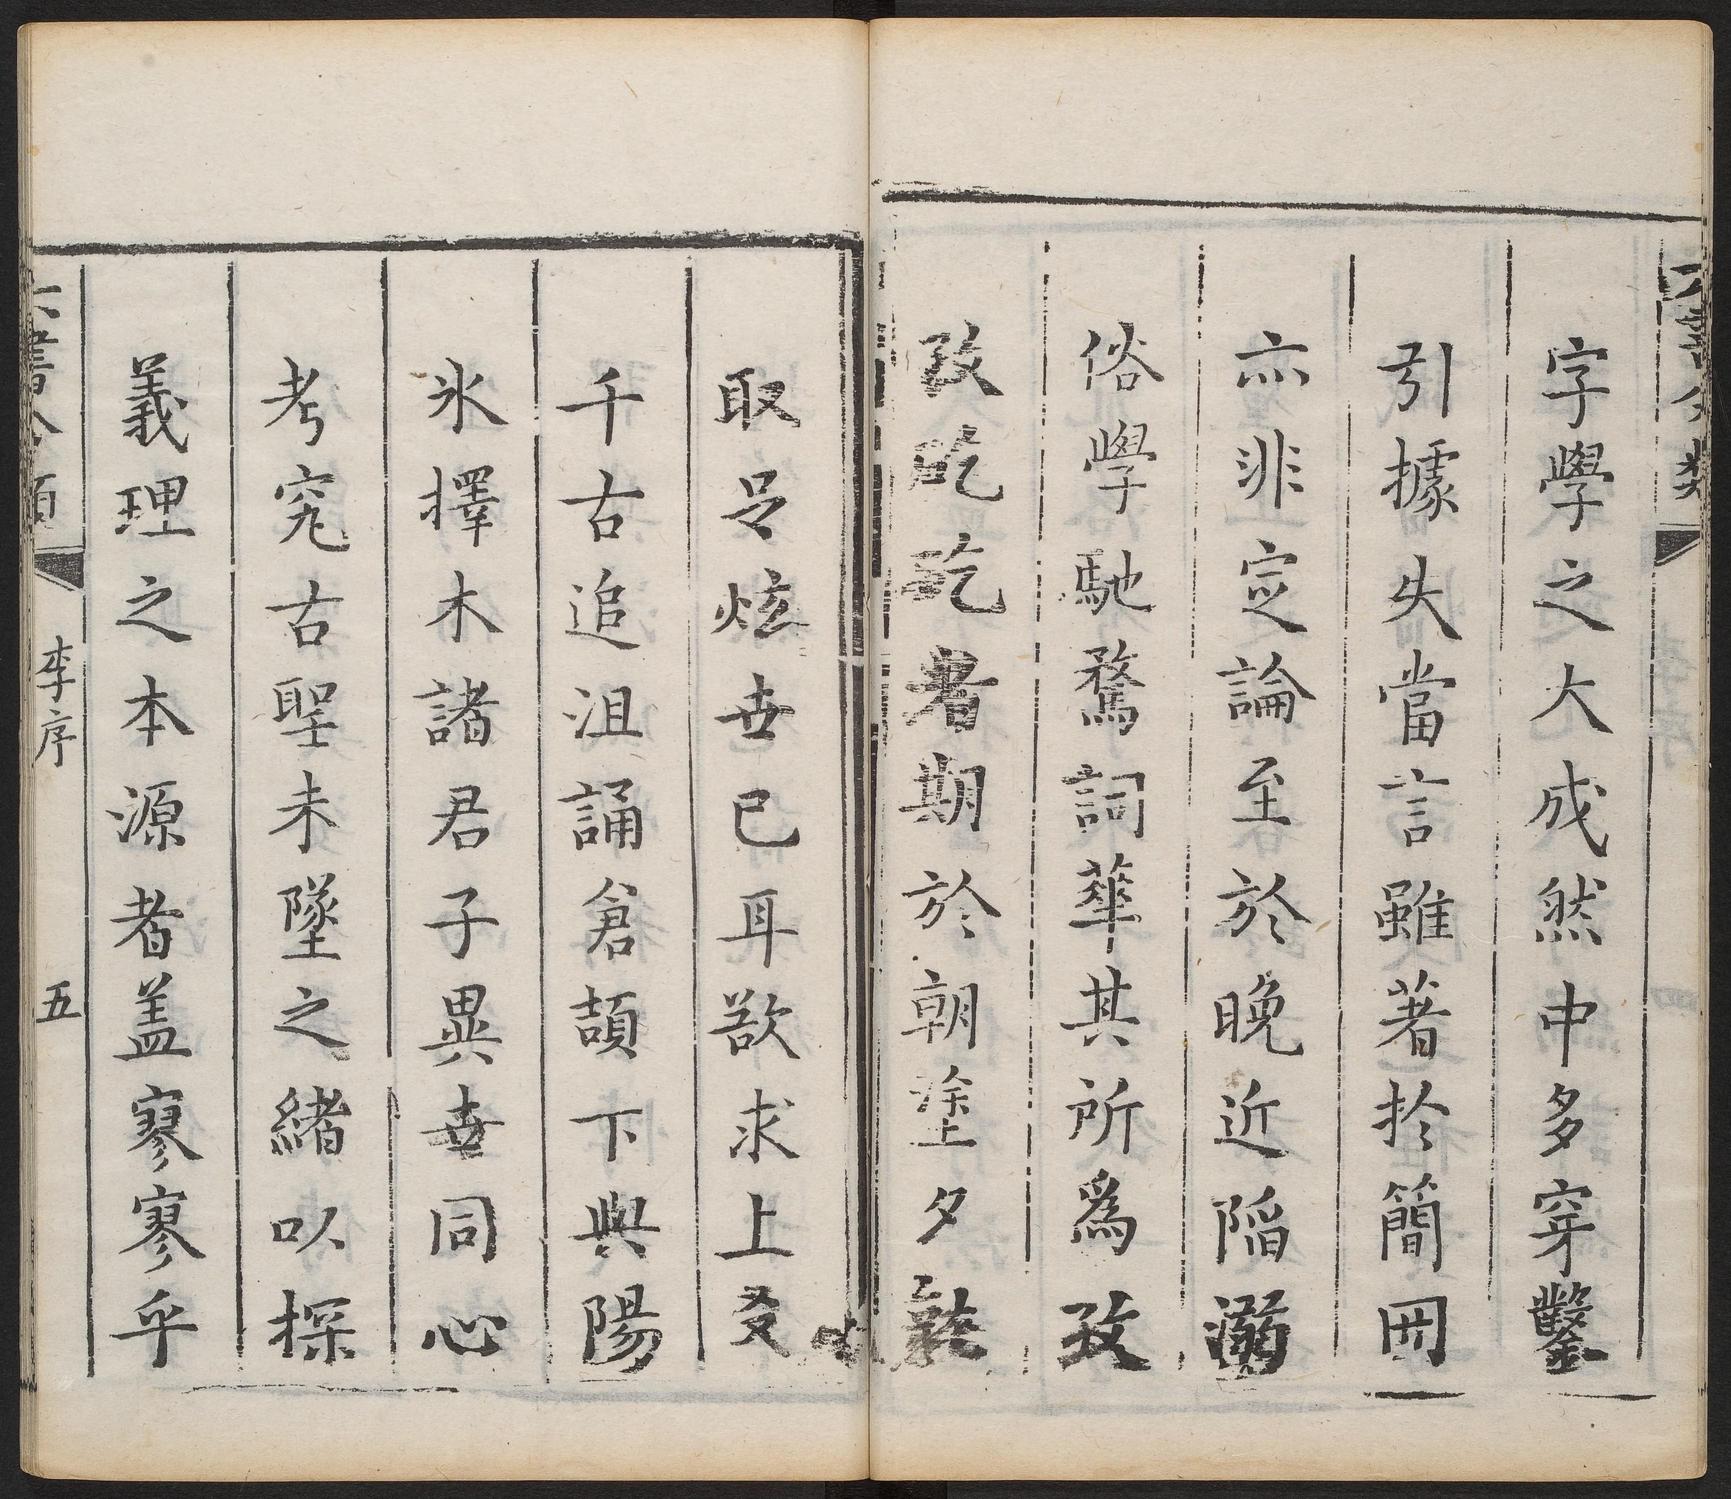 六書分類
字學之大成然中多穿鑿
引據失當言雖著於簡冊
亦非定論至於晚近陷溺
俗學馳騖詞華其所爲孜
孜矻矻者期於朝塗夕
取足炫世已耳欲求上及
千古追沮誦倉頡下與陽
氷擇木諸君子異世同心
考究古聖未墜之緒以探
義理之本源者盖寥寥乎
六書分類
李序
五